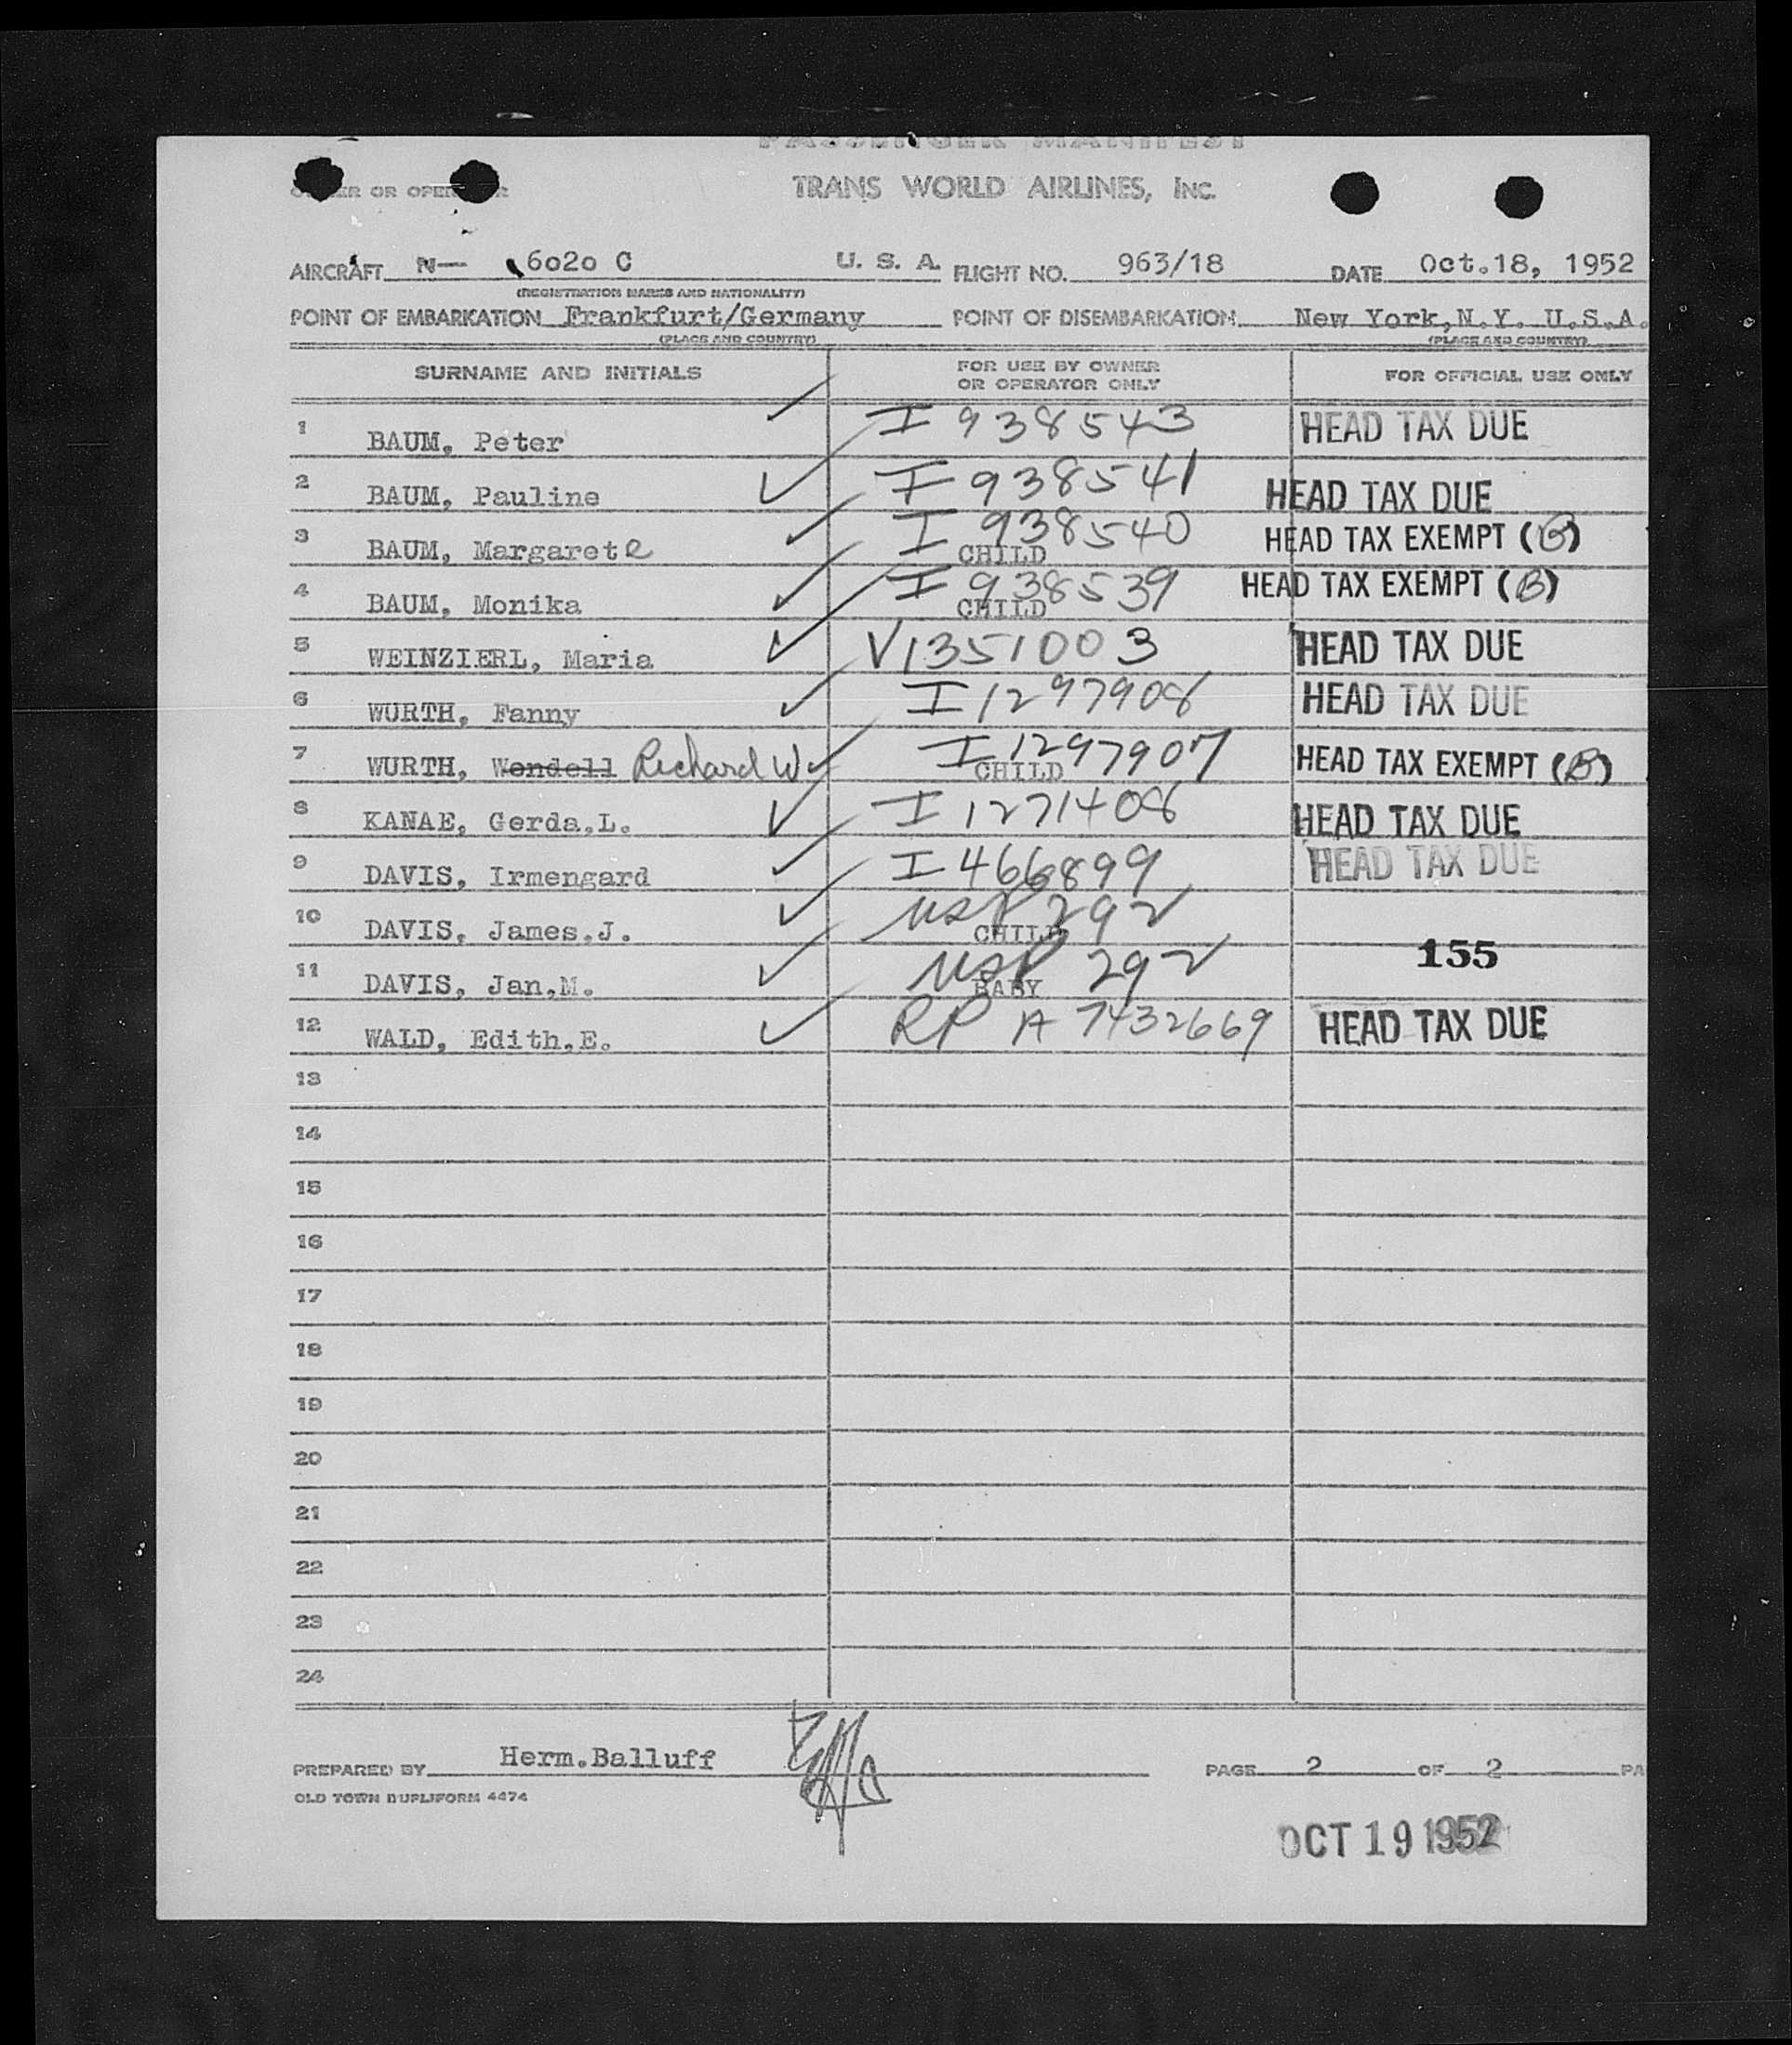 PASSENGER MANIFEST
OWNER OR OPERATOR TRANS WORLD AIRLINES, INC.
AIRCRAFT N— 6020 C U. S. A. FLIGHT NO. 963/18 DATE Oct.18, 1952
(REGISTRATION MARKS AND NATIONALITY)
POINT OF EMBARKATION Frankfurt/Germany POINT OF DISEMBARKATION New York,N.Y. U.S.A.
(PLACE AND COUNTRY) (PLACE AND COUNTRY)
SURNAME AND INITIALS FOR USE BY OWNER OR OPERATOR ONLY FOR OFFICIAL USE ONLY
1 BAUM, Peter I 938543 HEAD TAX DUE
2 BAUM, Pauline I 938541 HEAD TAX DUE
3 BAUM, Margarete I 938540 CHILD HEAD TAX EXEMPT (B)
4 BAUM, Monika I 938539 CHILD HEAD TAX EXEMPT (B)
5 WEINZIERL, Maria V1351003 HEAD TAX DUE
6 WURTH, Fanny I 1297908 HEAD TAX DUE
7 WURTH, Wendell Richard W I 1297907 CHILD HEAD TAX EXEMPT (B)
8 KANAE, Gerda.L. I 1271408 HEAD TAX DUE
9 DAVIS, Irmengard I 466899 HEAD TAX DUE
10 DAVIS, James.J. USP 292 CHILD
11 DAVIS, Jan.M. USP 292 BABY 155
12 WALD, Edith.E. RP A 7432669 HEAD TAX DUE
13
14
15
16
17
18
19
20
21
22
23
24
PREPARED BY Herm.Balluff PAGE 2 OF 2 PA
OLD TOWN DUPLIFORM 4474
OCT 19 1952